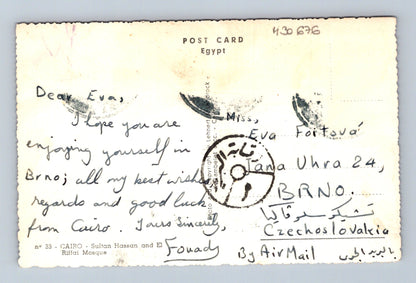 430676
POST CARD
Egypt
Dear Eva,
I hope you are
enjoying yourself in
Brno; all my best wishes,
regards and good luck
from Cairo. Yours Sincerely,
Fouad
nº 33 - CAIRO - Sultan Hassan and El
Rifai Mosque
Miss,
Eva Fortová
Jana Uhra 24,
BRNO.
تشيكوسلوفاكيا
Czechoslovakia
By Air Mail
بالبريد الجوي